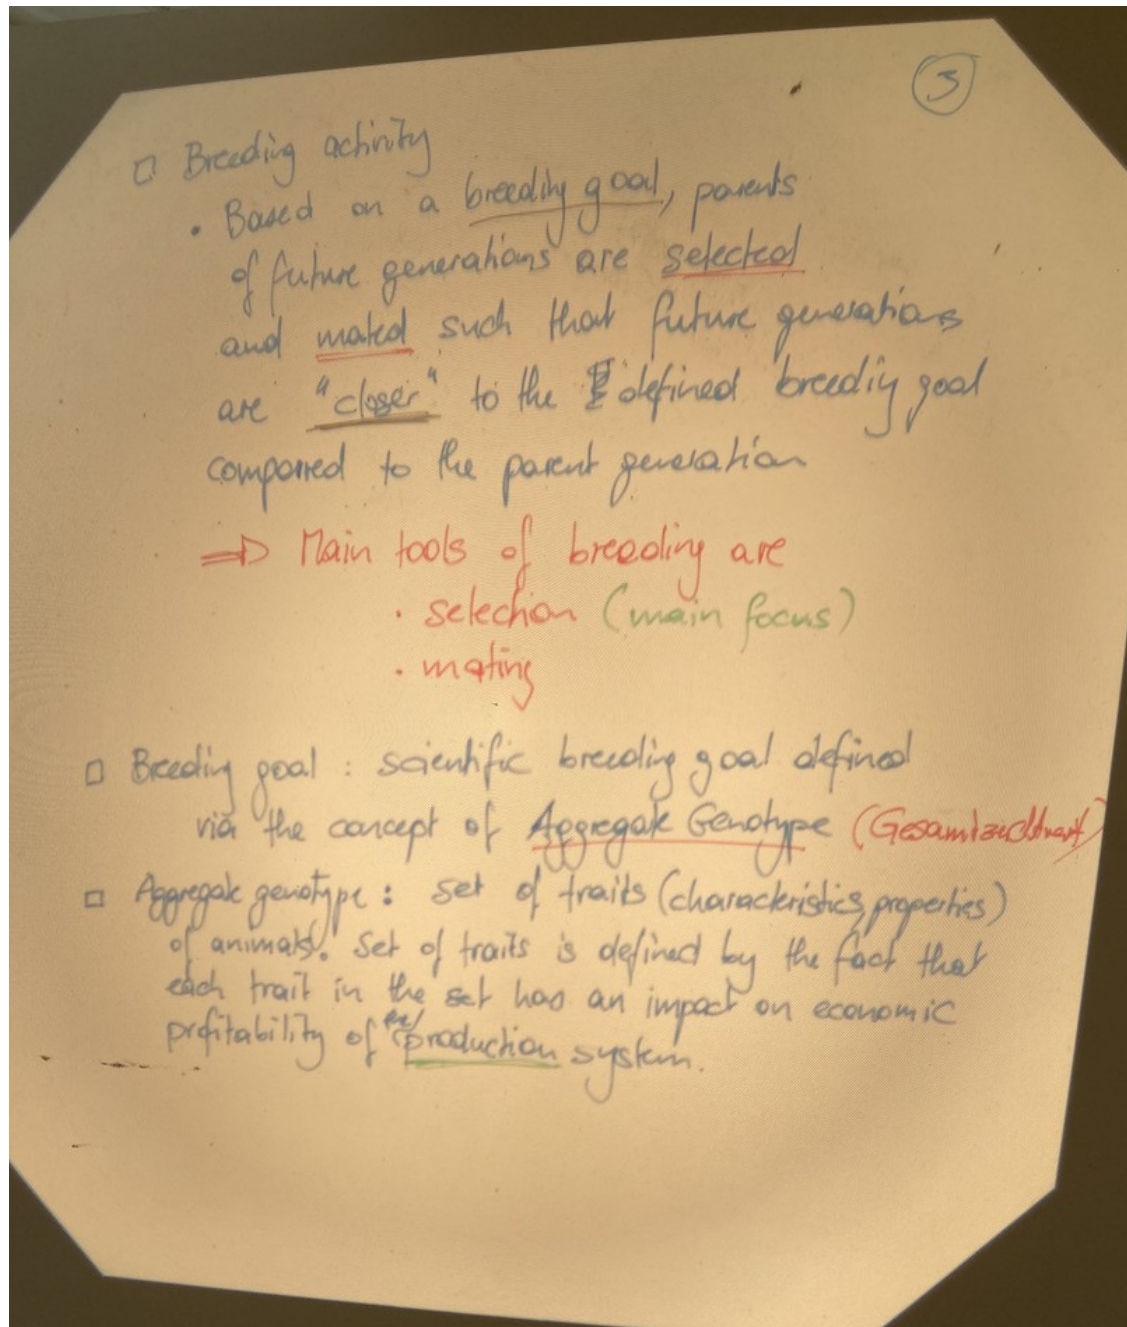 3
□ Breeding activity
• Based on a breeding goal, parents
of future generations are selected
and mated such that future generations
are "closer" to the defined breeding goal
compared to the parent generation
⇒ Main tools of breeding are
• selection (main focus)
• mating
□ Breeding goal : scientific breeding goal defined
via the concept of Aggregate Genotype (Gesamtzuchtwert)
□ Aggregate genotype : set of traits (characteristics, properties)
of animals. Set of traits is defined by the fact that
each trait in the set has an impact on economic
profitability of the production system.